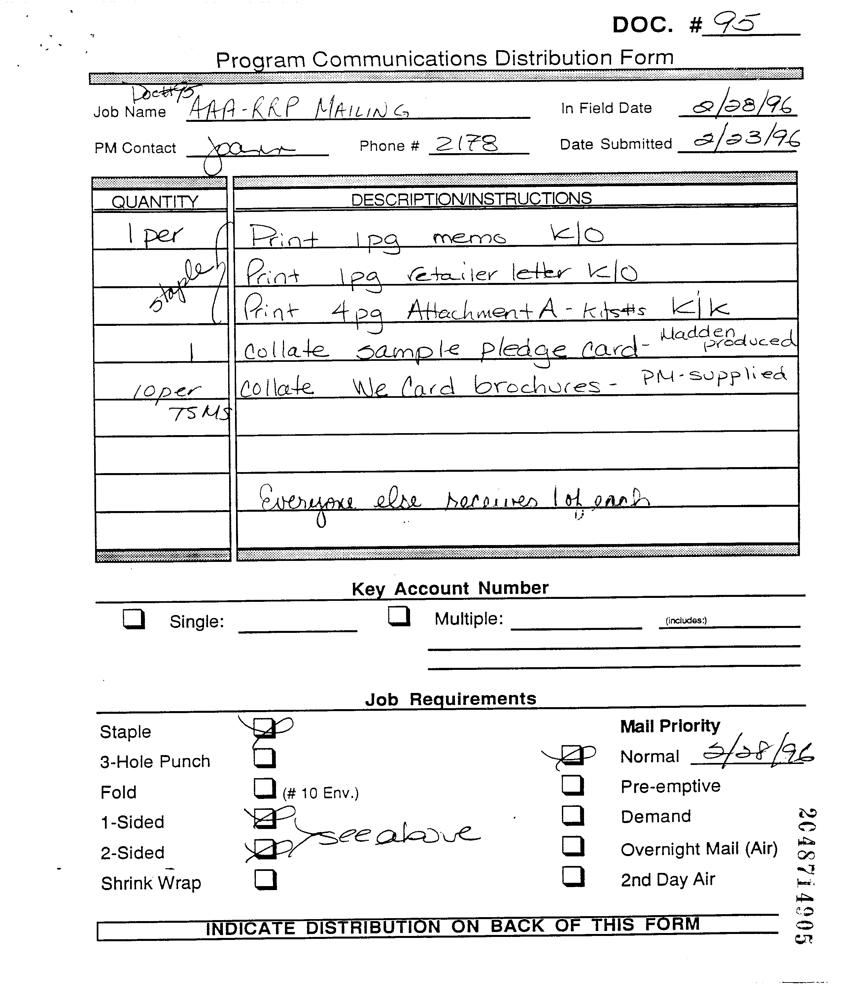 DOC. # 95
Program Communications Distribution Form
Doc#95
Job Name AAA-RRP MAILING In Field Date 2/28/96
PM Contact Joann Phone # 2178 Date Submitted 2/23/96
QUANTITY DESCRIPTION/INSTRUCTIONS
1 per Print 1pg memo K/O
staple Print 1pg retailer letter K/O
Print 4pg Attachment A - kits#s K/K
1 Collate sample pledge card- Madden produced
10 per TSMS Collate We Card brochures - PM-supplied
Everyone else receives 1 of each
Key Account Number
Single: Multiple: (includes:)
Job Requirements
Staple Mail Priority
3-Hole Punch Normal 2/28/96
Fold (# 10 Env.) Pre-emptive
1-Sided see above Demand
2-Sided Overnight Mail (Air)
Shrink Wrap 2nd Day Air
INDICATE DISTRIBUTION ON BACK OF THIS FORM
2048714905